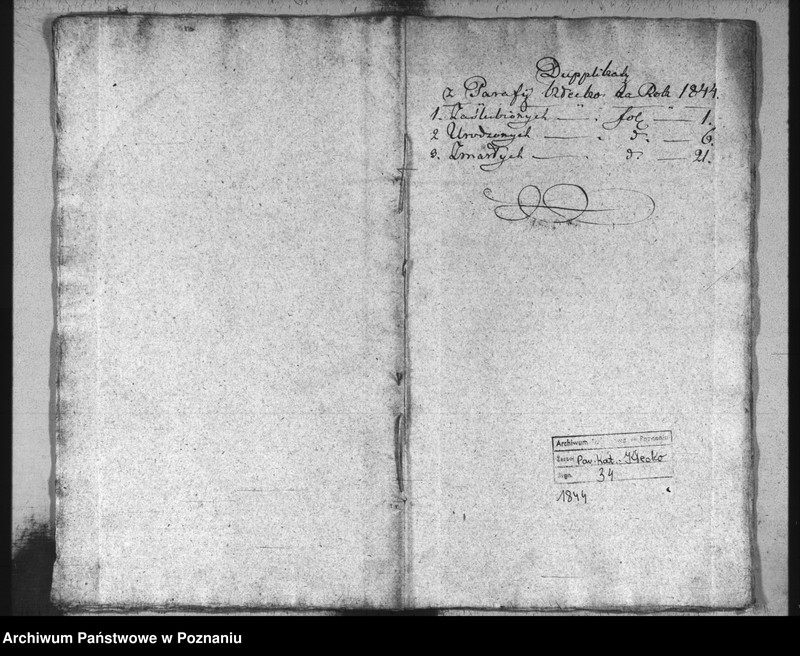 Dupplikaty
z Parafij Klecko za Rok 1844.
1. Zaślubionych — " — . fol. — " — 1.
2 Urodzonych — " — . d°. — 6.
3. Zmarłych — — . d°. — 21.
Archiwum Państwowe w Poznaniu
Zespół Par. Kat. - Kłecko
Sygn. 34
1844
Archiwum Państwowe w Poznaniu